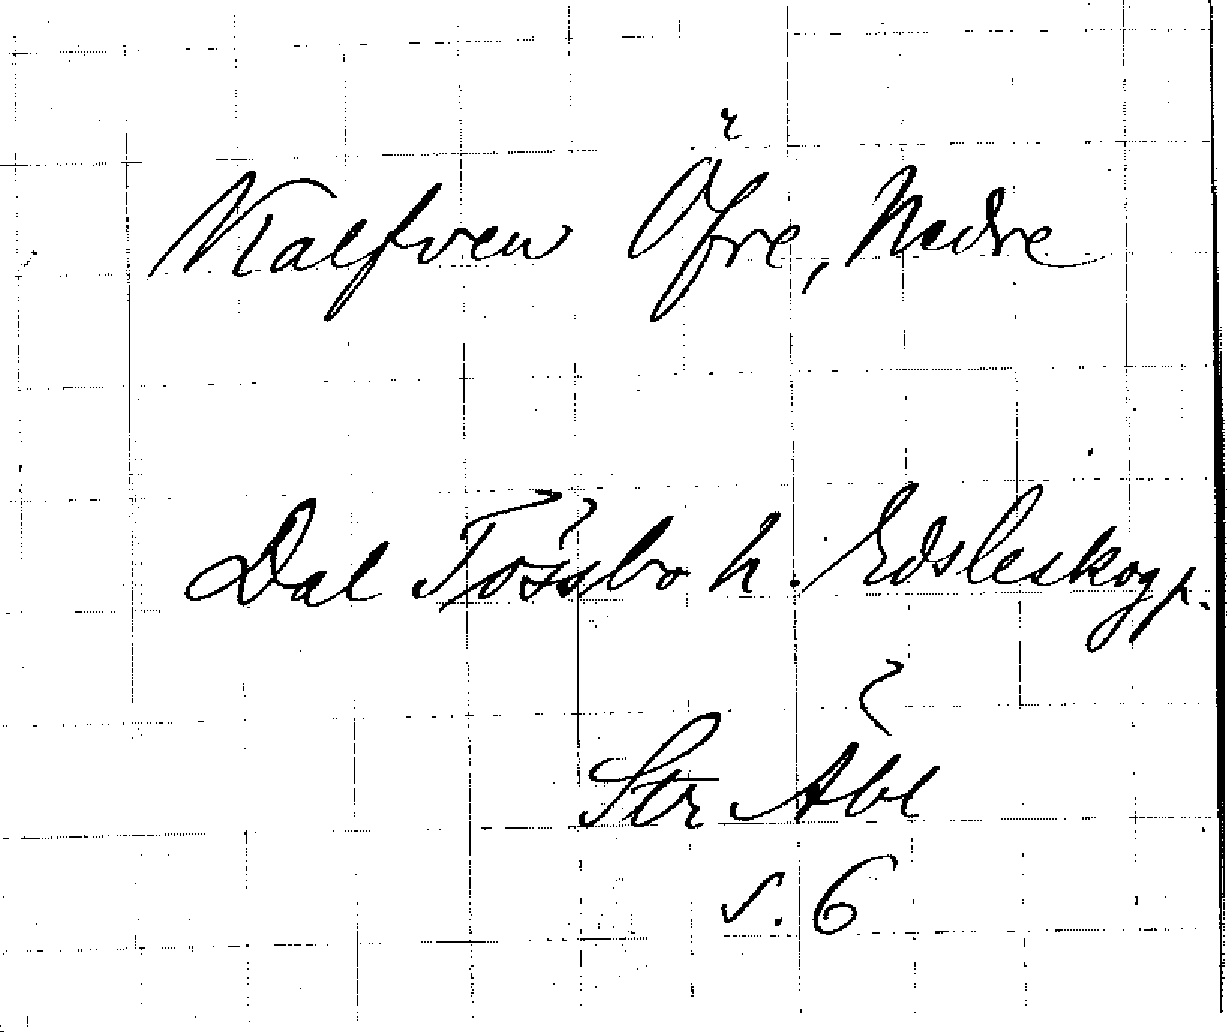 Kalfven Öfre, Nedre
Dal Tössbo h. Edsleskog p.
Str Åbl
s. 6